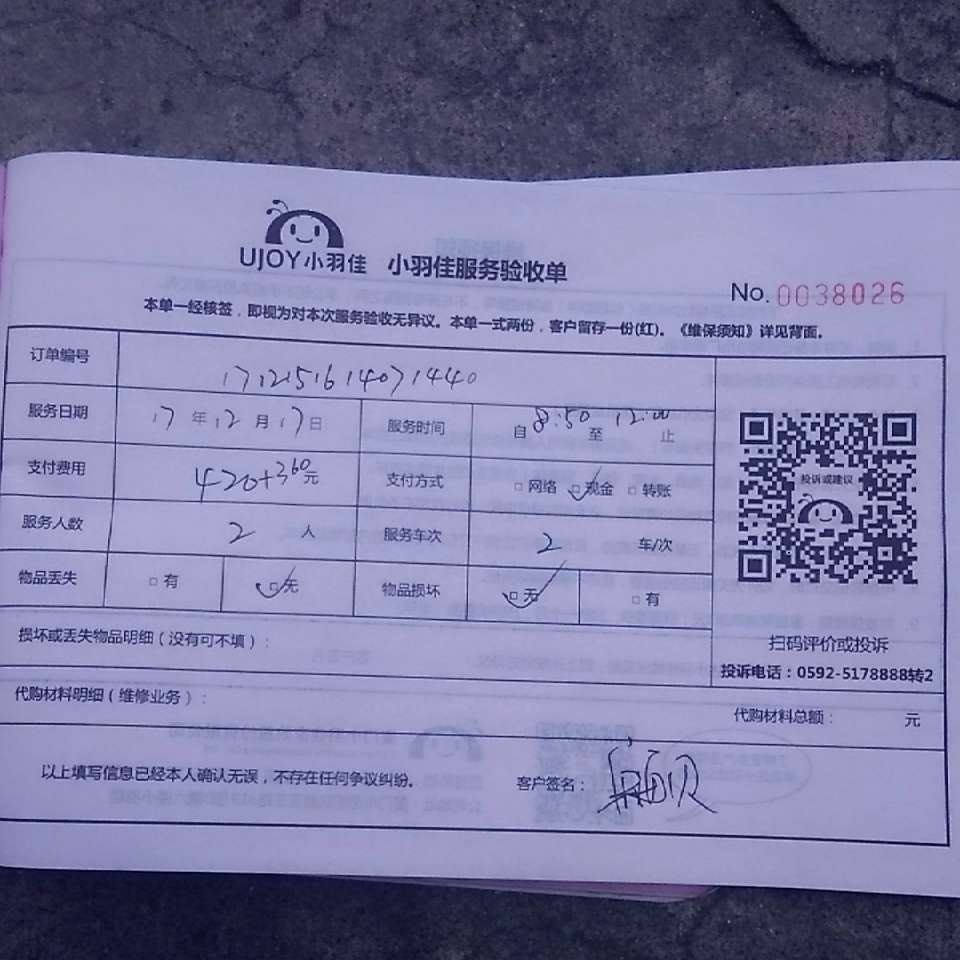 UJOY小羽佳 小羽佳服务验收单
No.0038026
本单一经核签，即视为对本次服务验收无异议。本单一式两份，客户留存一份(红)。《维保须知》详见背面。
订单编号 1712151614071440
服务日期 17年12月17日 服务时间 自8:50至12:00止
支付费用 420+360元 支付方式 □网络 ☑现金 □转账
服务人数 2人 服务车次 2 车/次
物品丢失 □有 ☑无 物品损坏 ☑无 □有
投诉或建议
扫码评价或投诉
投诉电话：0592-5178888转2
损坏或丢失物品明细（没有可不填）：
代购材料明细（维修业务）：
代购材料总额： 元
以上填写信息已经本人确认无误，不存在任何争议纠纷。 客户签名：